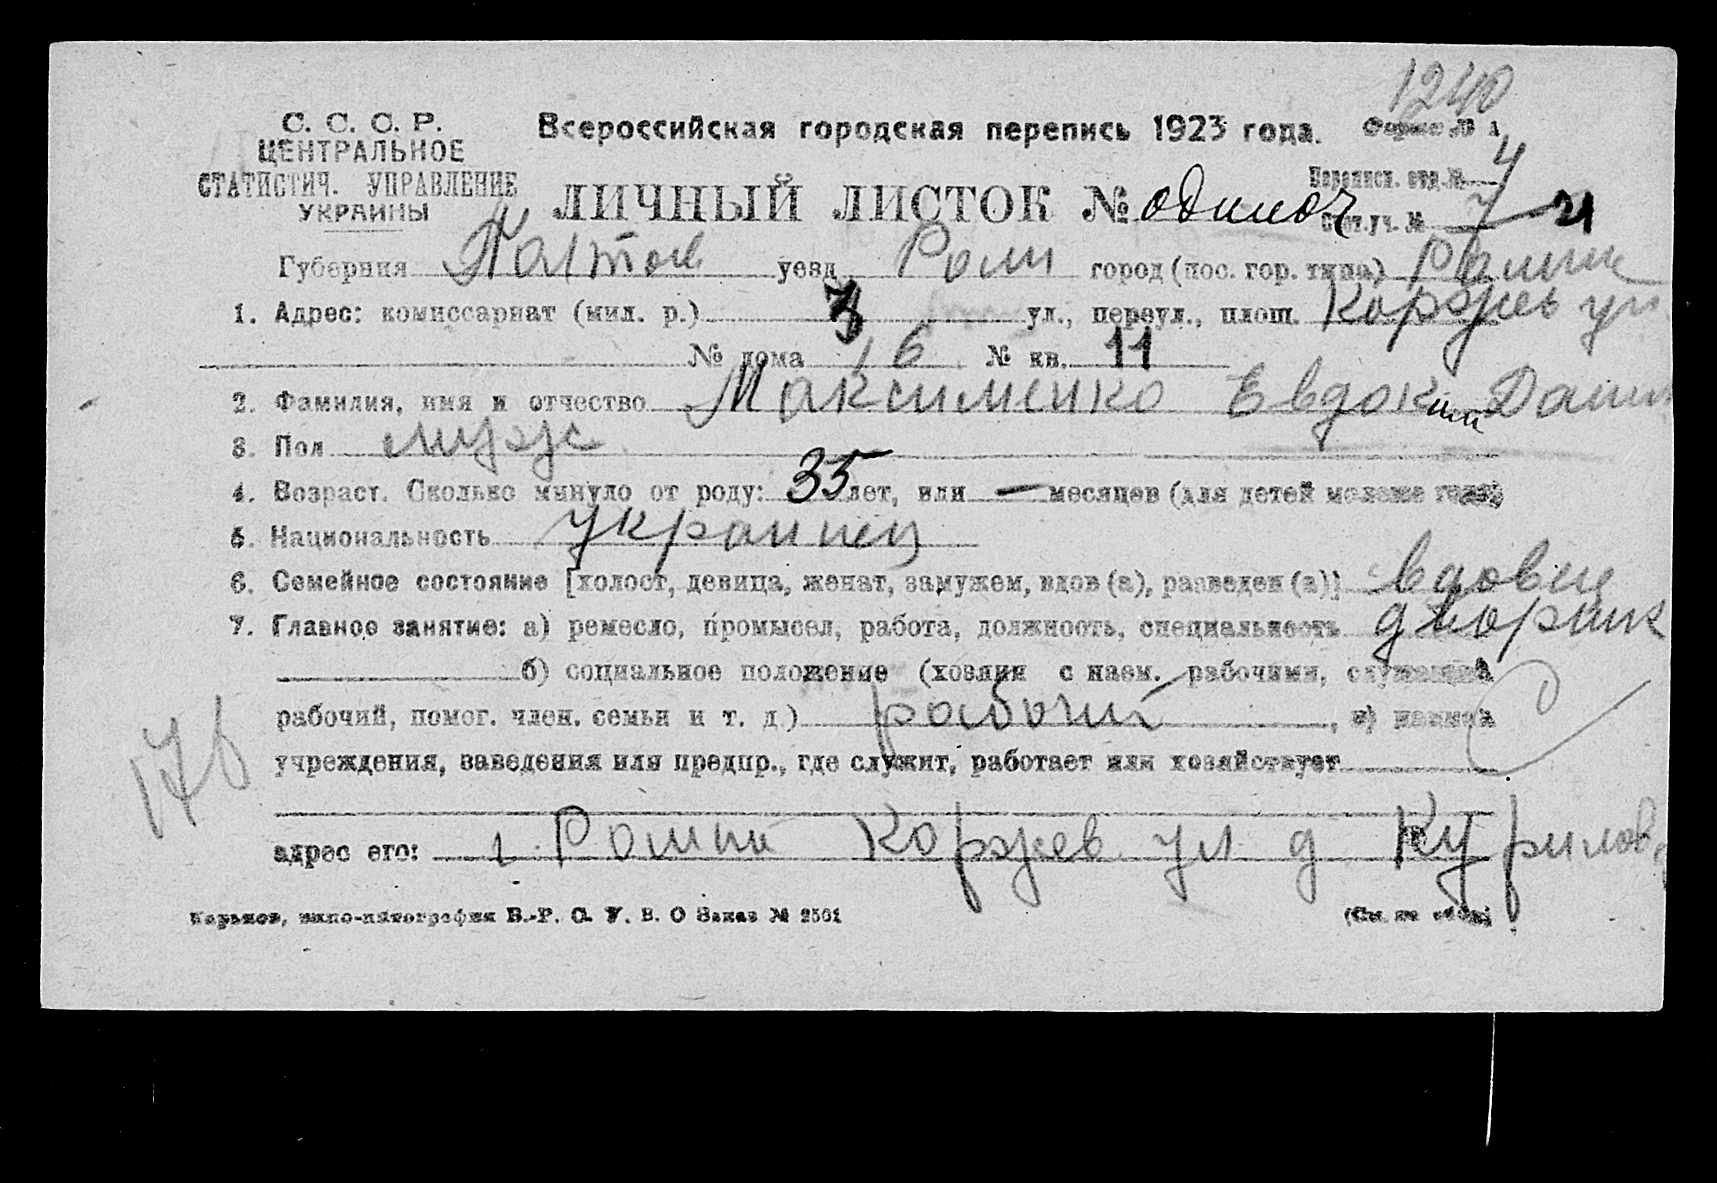 1240
С. С. С. Р.
ЦЕНТРАЛЬНОЕ
СТАТИСТИЧ. УПРАВЛЕНИЕ
УКРАИНЫ
Всероссийская городская перепись 1923 года. Форма № 1
Переписн. отд. № 4
ЛИЧНЫЙ ЛИСТОК № одиноч
Счет. уч. № 7-21
Губерния Полтов уезд Ром город (пос. гор. типа) Ромны
1. Адрес: комиссариат (мил. р.) ул., переул., площ. Коржев ул
№ дома 16 № кв. 11
2. Фамилия, имя и отчество Максименко Евдоким Данил
3. Пол мужс
4. Возраст. Сколько минуло от роду: 35 лет, или — месяцев (для детей моложе года)
5. Национальность украинец
6. Семейное состояние [холост, девица, женат, замужем, вдов (а), разведен (а)] вдовец
7. Главное занятие: а) ремесло, промысел, работа, должность, специальность дворник
б) социальное положение (хозяин с наем. рабочими, служащий
рабочий, помог. член. семьи и т. д.) рабочий, в)
учреждения, заведения или предпр., где служит, работает или хозяйствует
176
адрес его: г. Ромны Коржев ул д Курилов
Харьков, типо-литография В.-Р. С. У. В. О Заказ № 2501
(См. на обор.)